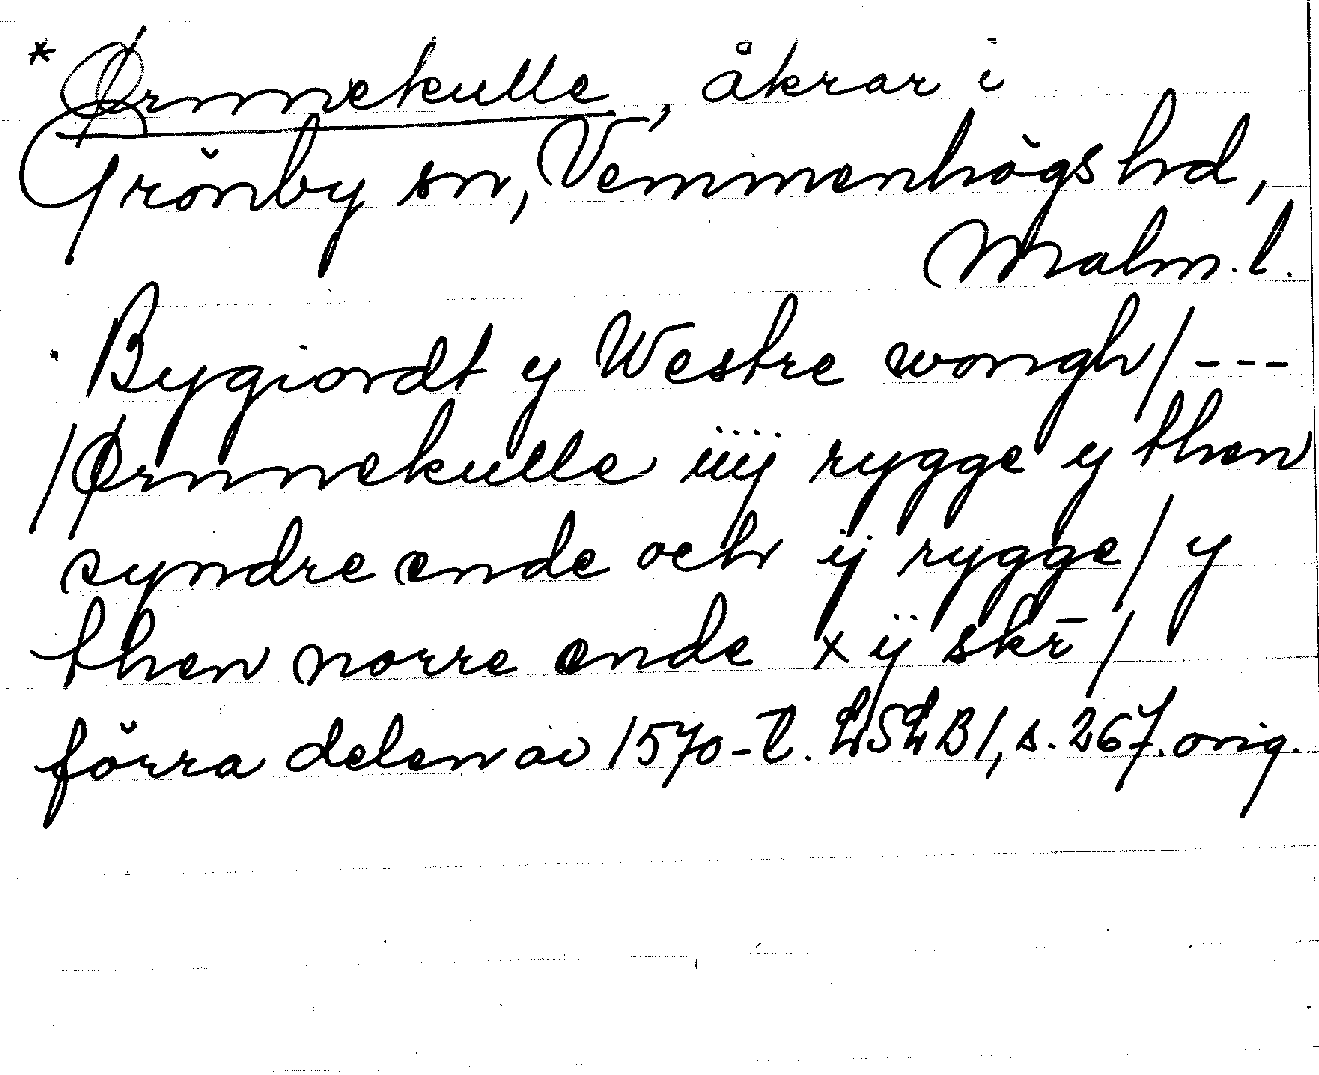 * Ørnnekulle, åkrar i
Grönby sn, Vemmenhögs hd,
Malm. l.
Bygiordt y Westre wongh / ---
/ Ørnnekulle iiij rygge y then
syndre ende och ij rygge / y
then norre ende x ij skr̄ /
förra delen av 1570-t. LSLB 1, s. 267. orig.